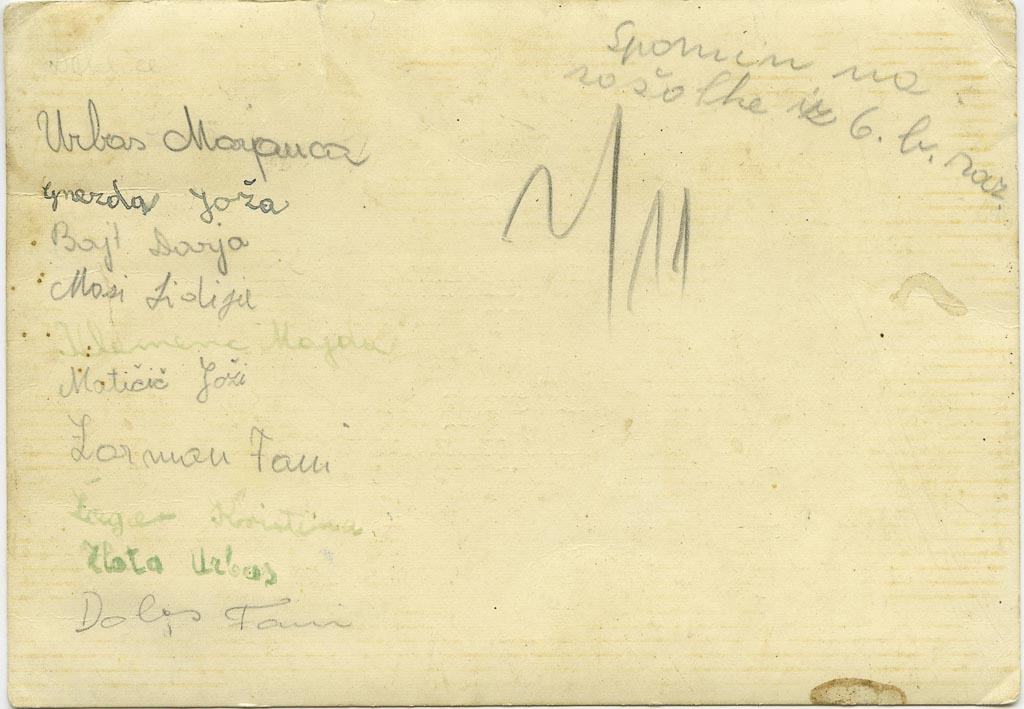 Spomin na
sošolke iz 6. b. raz.
Urbas Marjanca
Gnezda Joža
Bajt Darja
Masi Lidija
Klemenc Majda
Matičič Joži
Zorman Fani
Žager Kristina
Zlata Urbas
Doles Fani